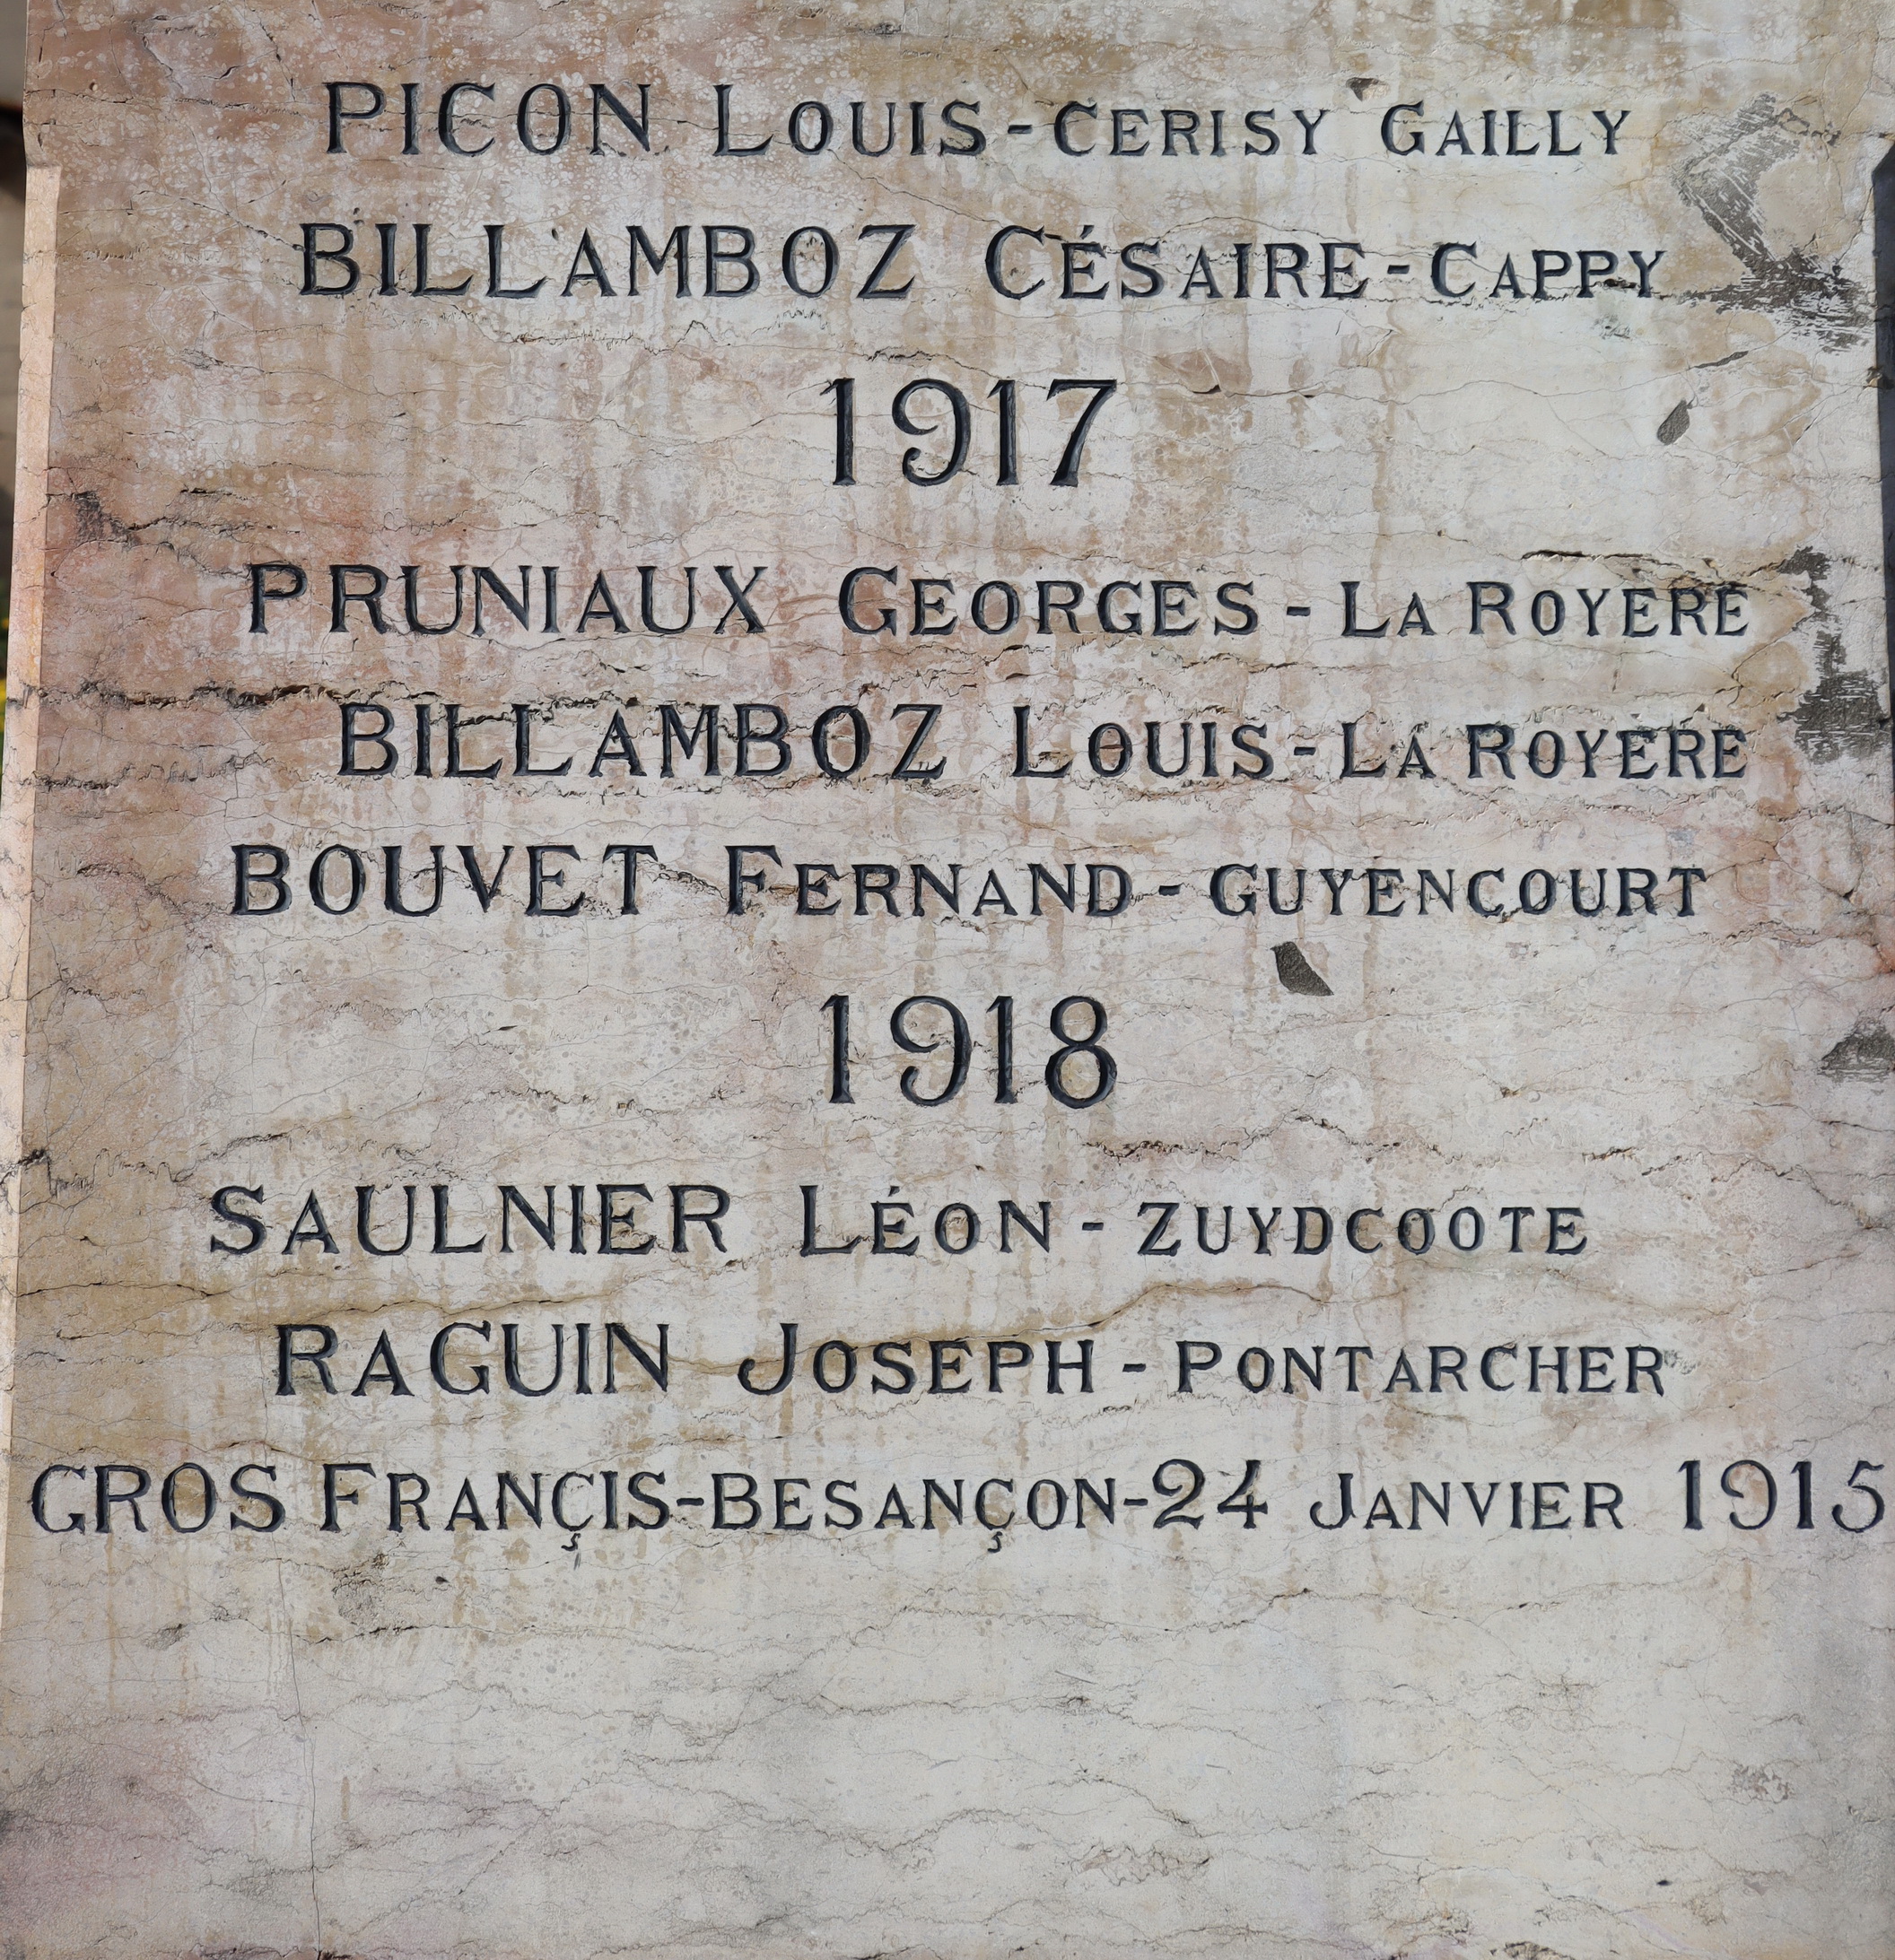 PICON LOUIS-CERISY GAILLY
BILLAMBOZ CÉSAIRE-CAPPY
1917
PRUNIAUX GEORGES-LA ROYERE
BILLAMBOZ LOUIS-LA ROYERE
BOUVET FERNAND-GUYENCOURT
1918
SAULNIER LÉON-ZUYDCOOTE
RAGUIN JOSEPH-PONTARCHER
GROS FRANÇIS-BESANÇON-24 JANVIER 1915